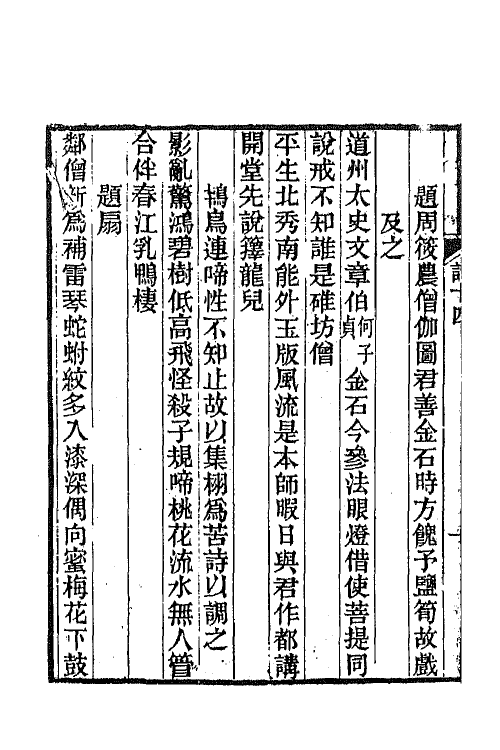 詩十四
題周筱農僧伽圖君善金石時方餽予鹽筍故戲
及之
道州太史文章伯何子貞金石今參法眼燈借使菩提同
說戒不知誰是碓坊僧
平生北秀南能外玉版風流是本師暇日與君作都講
開堂先說籜龍兒
鴇鳥連啼性不知止故以集栩爲苦詩以調之
影亂驚鴻碧樹低高飛怪殺子規啼桃花流水無人管
合伴春江乳鴨棲
題扇
鄰僧新爲補雷琴蛇蚹紋多入漆深偶向蜜梅花下鼓